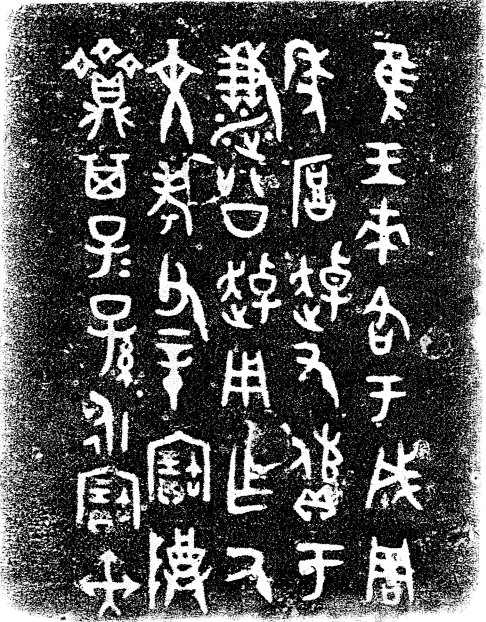 隹王來各于成周
年厚趠又于
溓公趠用乍氒
文考父辛寶尊
齍其子=孫=永寶朿